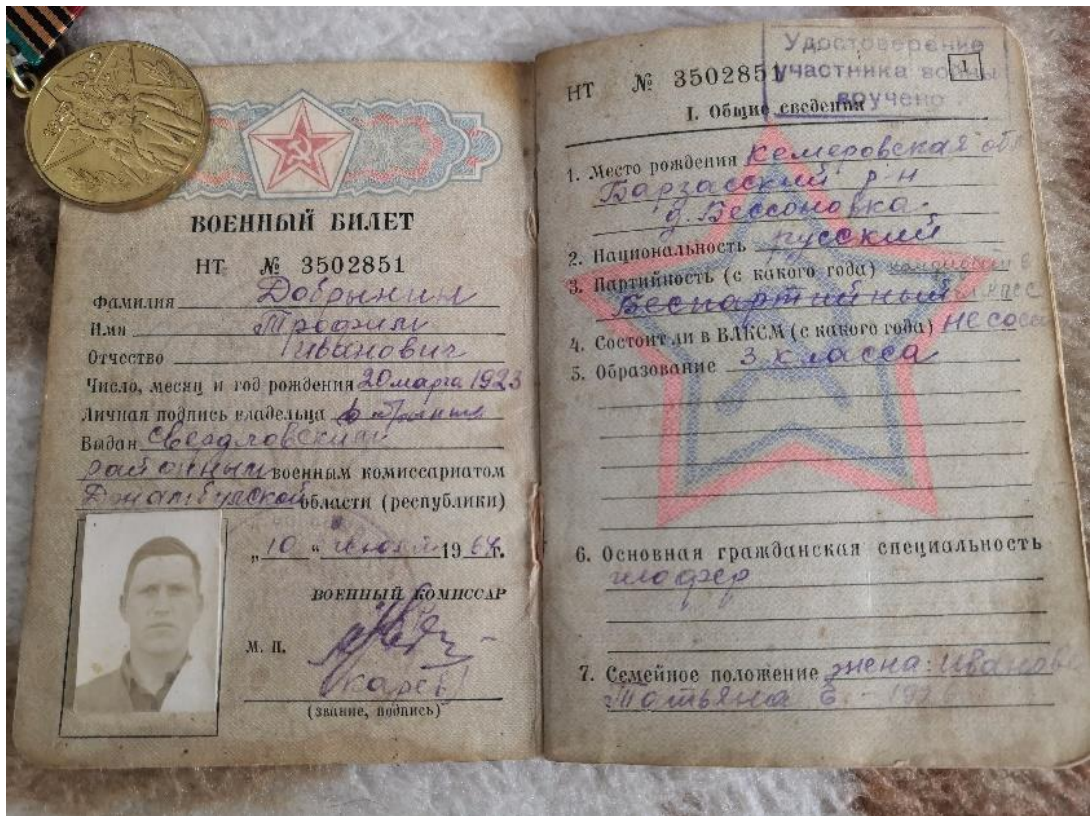 ВОЕННЫЙ БИЛЕТ
НТ № 3502851
Фамилия Добрынин
Имя Трофим
Отчество Иванович
Число, месяц и год рождения 20 марта 1923
Личная подпись владельца
Выдан Свердловским
районным военным комиссариатом
Джамбулской области (республики)
„10“ 1964г.
ВОЕННЫЙ КОМИССАР
М. П.
(звание, подпись)
Удостоверение
участника войны
вручено
1
НТ № 3502851
I. Общие сведения
1. Место рождения Кемеровская об
Барзасский р-н
д. Бессоновка.
2. Национальность русский
3. Партийность (с какого года)
Беспартийный
4. Состоит ли в ВЛКСМ (с какого года) не сос
5. Образование 3 класса
6. Основная гражданская специальность
шофер
7. Семейное положение жена: Иванов
Татьяна